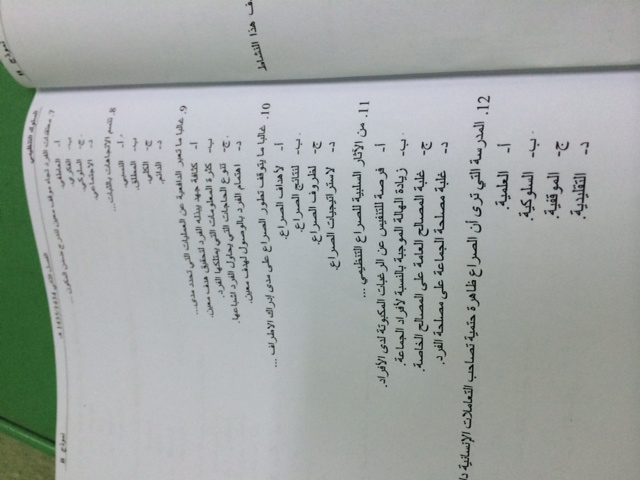 نموذج B
ف هذا النشاط
السلوك التنظيمي
الفصل الثاني 1433/1434 هـ
نموذج B
7. معتقدات الفرد تجاه موقف معين تندرج ضمن المكون ...
أ- العاطفي.
ب- الفكري.
ج- السلوكي.
د- الاجتماعي.
8. تتسم الاتجاهات بالثبات...
أ- النسبي.
ب- المطلق.
ج- الكلي.
د- الدائم.
9. غالبا ما تعبر الدافعية عن العمليات التي تحدد مدى...
أ- كثافة جهد يبذله الفرد لتحقيق هدف معين.
ب- كثرة المعلومات التي يمتلكها الفرد.
ج- تنوع الحاجات التي يحاول الفرد اشباعها.
د- اهتمام الفرد بالوصول لهدف معين.
10. غالبا ما يتوقف تطور الصراع على مدى إدراك الاطراف ...
أ- لأهداف الصراع.
ب- لنتائج الصراع.
ج- لظروف الصراع.
د- لاستراتيجيات الصراع.
11. من الآثار السلبية للصراع التنظيمي ...
أ- فرصة للتنفيس عن الرغبات المكبوتة لدى الأفراد.
ب- زيادة الهالة الموجبة بالنسبة لأفراد الجماعة.
ج- غلبة المصالح العامة على المصالح الخاصة.
د- غلبة مصلحة الجماعة على مصلحة الفرد.
12. المدرسة التي ترى أن الصراع ظاهرة حتمية تصاحب التعاملات الإنسانية دا
أ- العلمية.
ب- السلوكية.
ج- الموقفية.
د- التقليدية.